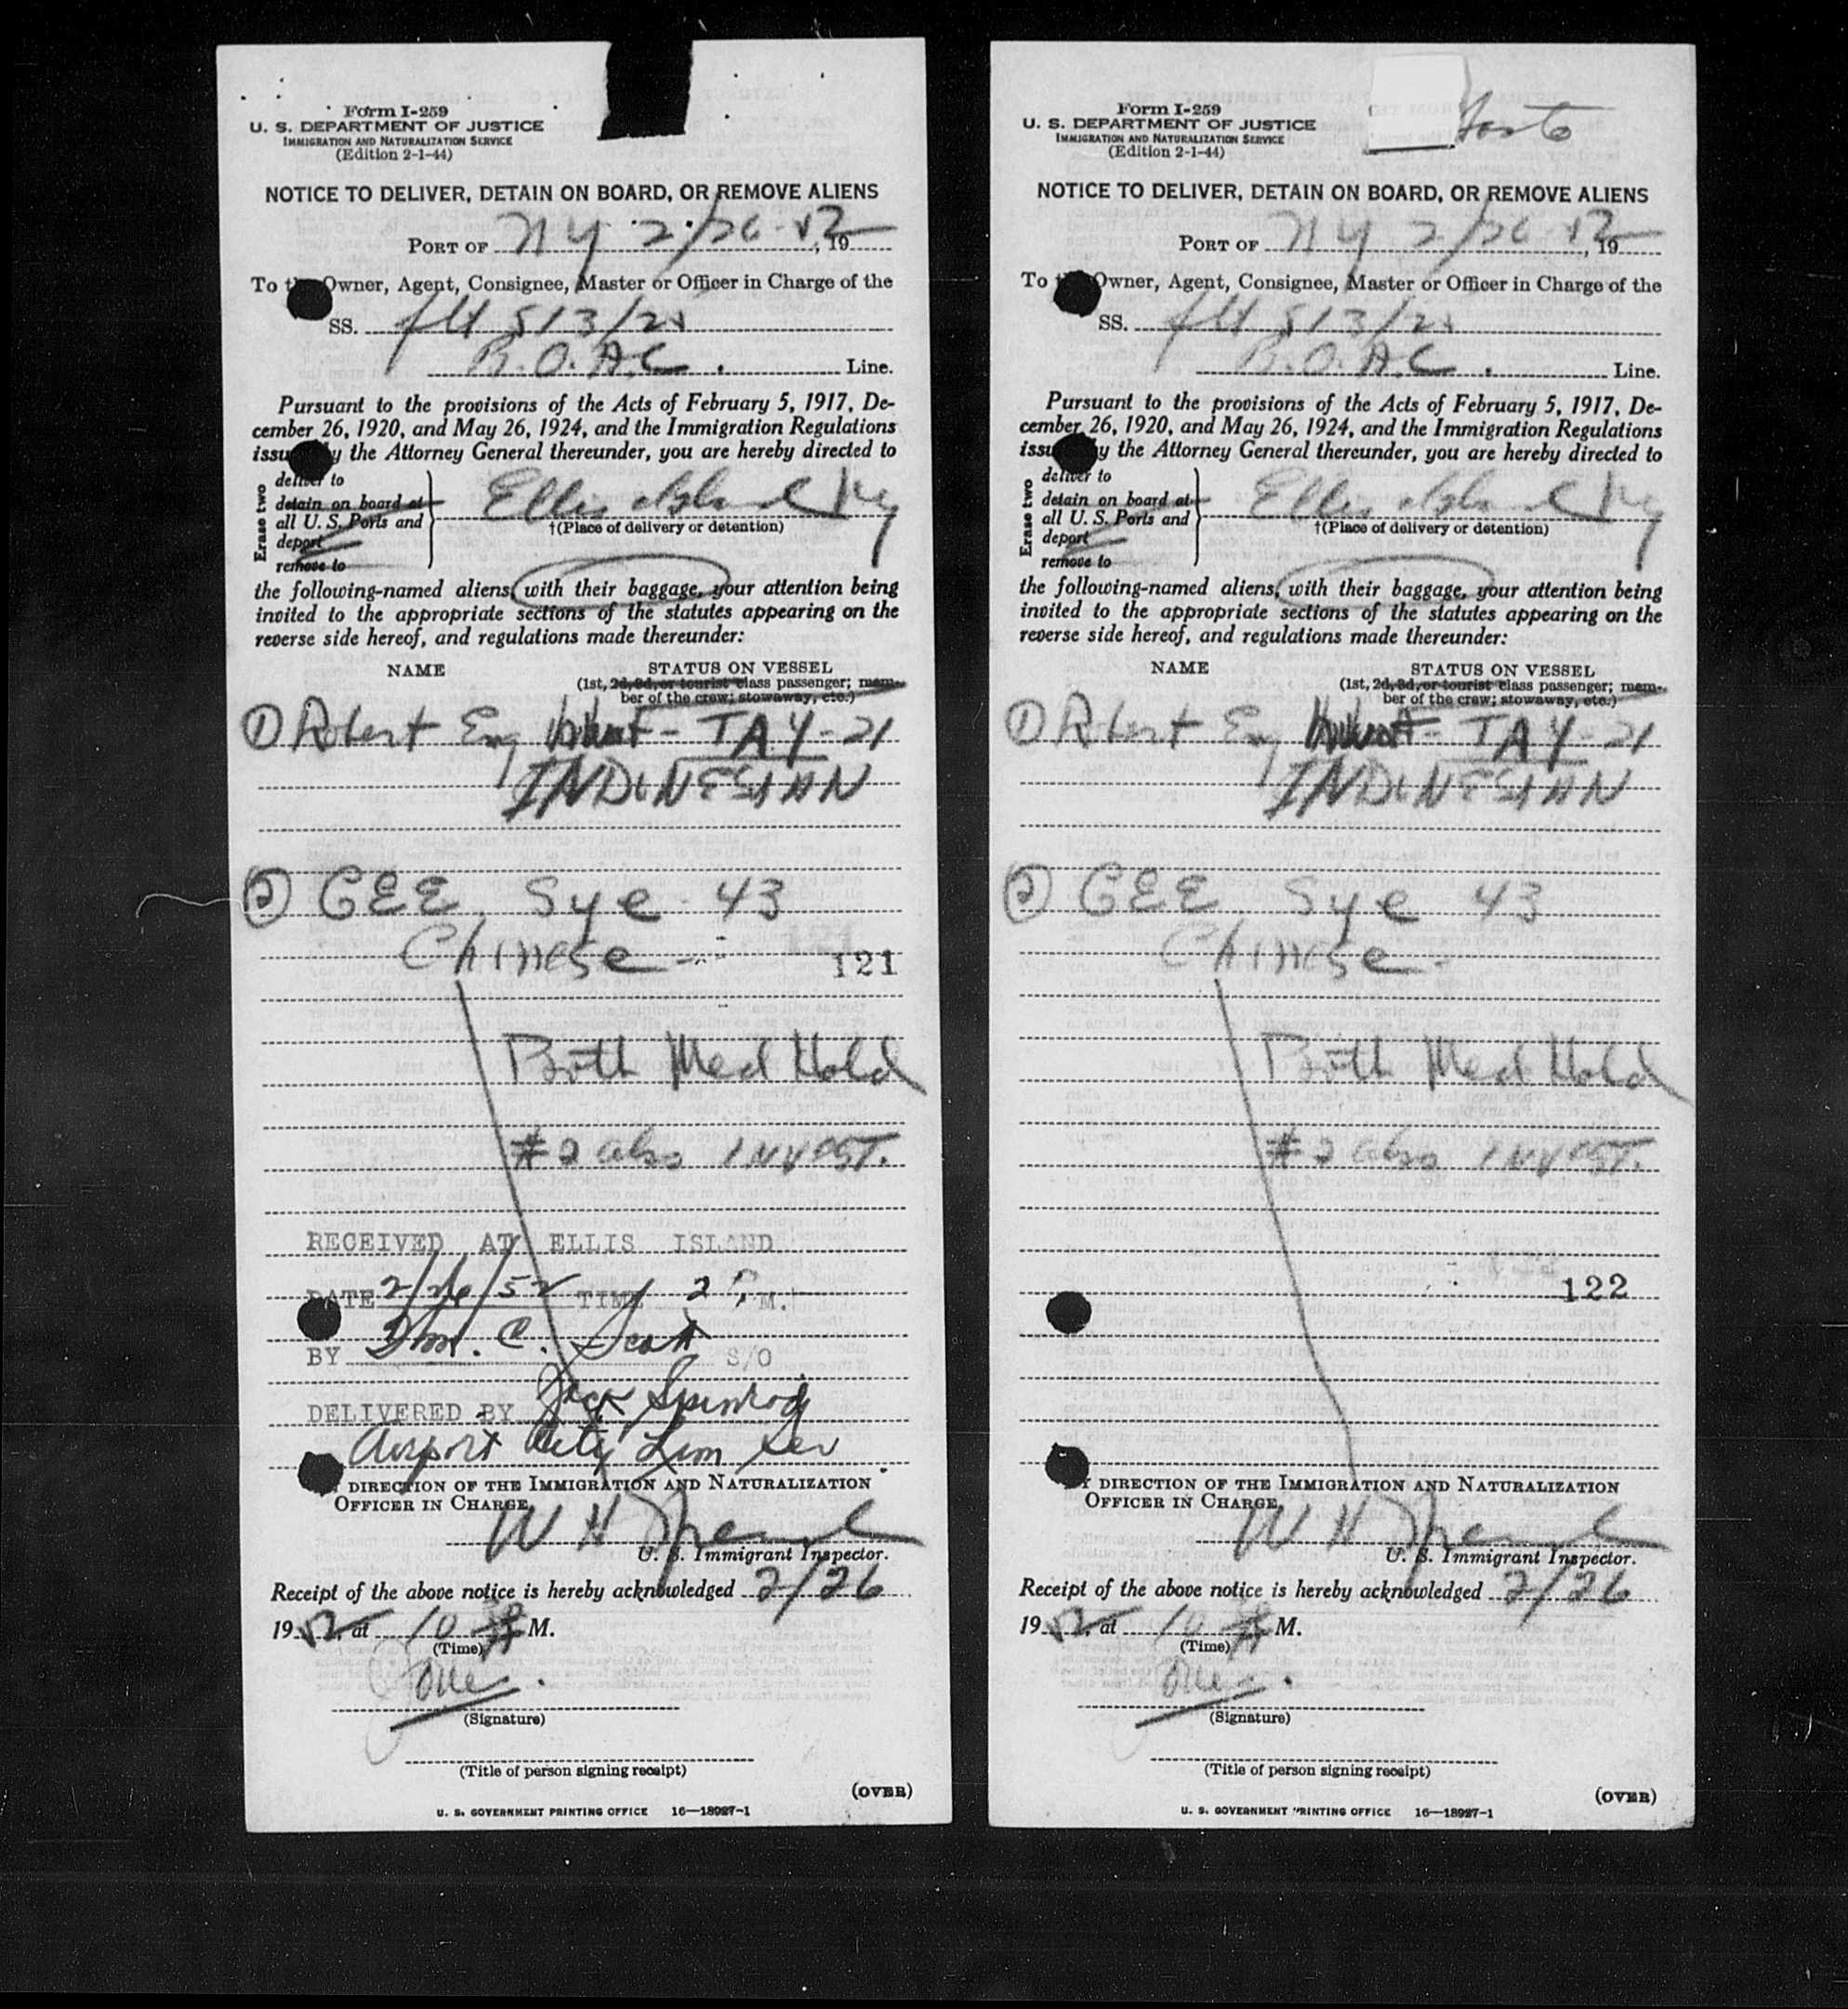 Form I-259
U. S. DEPARTMENT OF JUSTICE
IMMIGRATION AND NATURALIZATION SERVICE
(Edition 2-1-44)
NOTICE TO DELIVER, DETAIN ON BOARD, OR REMOVE ALIENS
PORT OF NY 2/26 52, 19
To the Owner, Agent, Consignee, Master or Officer in Charge of the
SS. flt 513/25
B.O.A.C. Line.
Pursuant to the provisions of the Acts of February 5, 1917, De-
cember 26, 1920, and May 26, 1924, and the Immigration Regulations
issued by the Attorney General thereunder, you are hereby directed to
Erase two
deliver to
detain on board at
all U. S. Ports and
deport
remove to
Ellis Island NY
†(Place of delivery or detention)
the following-named aliens, with their baggage, your attention being
invited to the appropriate sections of the statutes appearing on the
reverse side hereof, and regulations made thereunder:
NAME STATUS ON VESSEL
(1st, 2d, 3d, or tourist class passenger; mem-
ber of the crew; stowaway, etc.)
① Robert Eng - TAY - 21
INDONESIAN
② GEE, Sye - 43
Chinese -
121
Both Med Hold
#2 also INVEST.
RECEIVED AT ELLIS ISLAND
DATE 2/26/52 TIME 2 P.M.
BY Wm. C. Scott S/O
DELIVERED BY Jack
Airport City Lim Ser
BY DIRECTION OF THE IMMIGRATION AND NATURALIZATION
OFFICER IN CHARGE.
W H
U. S. Immigrant Inspector.
Receipt of the above notice is hereby acknowledged 2/26
1952, at 10 30 A M.
(Time)
(Signature)
(Title of person signing receipt)
(OVER)
U. S. GOVERNMENT PRINTING OFFICE 16—18927-1
Form I-259
U. S. DEPARTMENT OF JUSTICE
IMMIGRATION AND NATURALIZATION SERVICE
(Edition 2-1-44)
NOTICE TO DELIVER, DETAIN ON BOARD, OR REMOVE ALIENS
PORT OF NY 2/26 52, 19
To the Owner, Agent, Consignee, Master or Officer in Charge of the
SS. flt 513/25
B.O.A.C. Line.
Pursuant to the provisions of the Acts of February 5, 1917, De-
cember 26, 1920, and May 26, 1924, and the Immigration Regulations
issued by the Attorney General thereunder, you are hereby directed to
Erase two
deliver to
detain on board at
all U. S. Ports and
deport
remove to
Ellis Island NY
†(Place of delivery or detention)
the following-named aliens, with their baggage, your attention being
invited to the appropriate sections of the statutes appearing on the
reverse side hereof, and regulations made thereunder:
NAME STATUS ON VESSEL
(1st, 2d, 3d, or tourist class passenger; mem-
ber of the crew; stowaway, etc.)
① Robert Eng - TAY - 21
INDONESIAN
② GEE, Sye 43
Chinese -
Both Med Hold
#2 also INVEST.
122
BY DIRECTION OF THE IMMIGRATION AND NATURALIZATION
OFFICER IN CHARGE.
W H
U. S. Immigrant Inspector.
Receipt of the above notice is hereby acknowledged 2/26
1952, at 10 30 A M.
(Time)
(Signature)
(Title of person signing receipt)
(OVER)
U. S. GOVERNMENT PRINTING OFFICE 16—18927-1